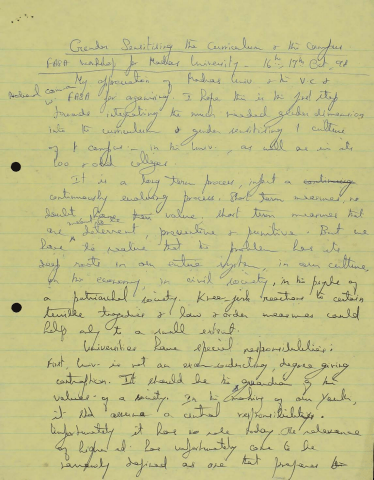 Gender Sensitising the Curriculum & the Campus
workshop for Madras University - 16th, 17th Oct, 98
My appreciation of Madras Univ & the V.C &
for organising I hope this is the first step
towards integrating the much needed gender dimensions
into the curriculum & gender sensitising culture
of campus - in the univ., as well as in its
100 colleges.
It is a long term process, infact a continuously
continuously evolving process. Short term measures, no
doubt have their value. Short term measures that
are deterrent, preventive & punitive. But we
have to realise that the problem has its
deep roots in our entire system, in our culture,
in the economy, in civil society, in the psyche of
a patriarchal society. Knee jerk reactions to certain
terrible tragedies & law & order measures could
help only to a small extent.
Universities have special responsibilities.
First, Univ. is not an exam conducting, degree giving
contraption. It should be the guardian of the
values of a society. In the making of our youth,
it shd assume a central responsibility.
Unfortunately it has no role today. The relevance
of higher ed. has unfortunately come to be
narrowly defined as one that prepares